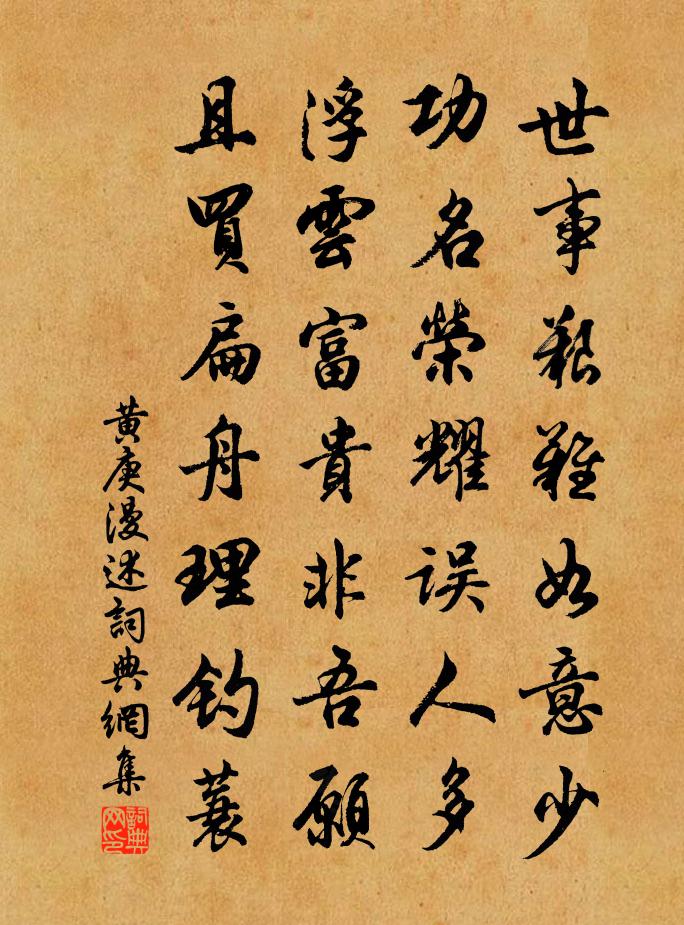 世事艱難如意少
功名榮耀误人多
浮雲富貴非吾願
且買扁舟理钓蓑
黄庚漫述詞典網集
詞典网印